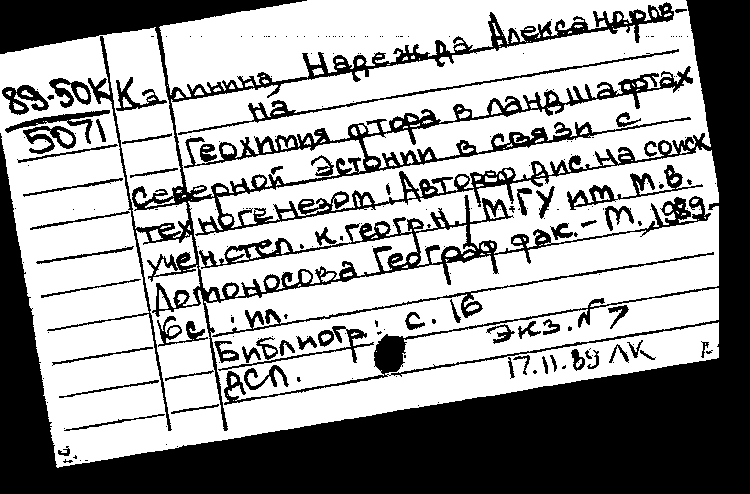 89-50К
5071
Калинина, Надежда Александров-
на
Геохимия фтора в ландшафтах
северной Эстонии в связи с
техногенезом : Автореф. дис. на соиск
учен. степ. к. геогр. н. / МГУ им. М.В.
Ломоносова. Географ. фак. - М., 1989.-
16 с. : ил.
Библиогр : с. 16
ДСП.
Экз. № 7
17.11.89 ЛК